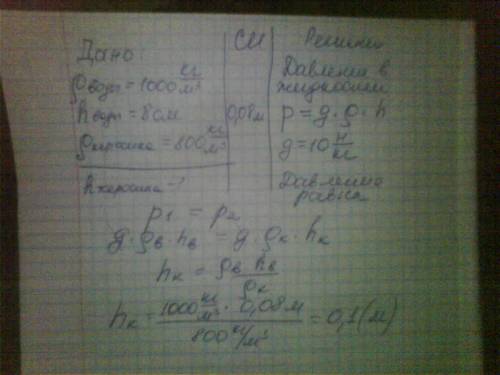 Дано:
ρводы = 1000 кг/м³
hводы = 80м
ρкеросина = 800 кг/м³
hкеросина - ?
СИ
0,08м
Решение
Давление в
жидкостях
p = g · ρ · h
g = 10 Н/кг
Давление
равны
p1 = p2
g · ρв · hв = g · ρк · hк
hк = ρв hв / ρк
hк = 1000 кг/м³ · 0,08м / 800 кг/м³ = 0,1 (м)